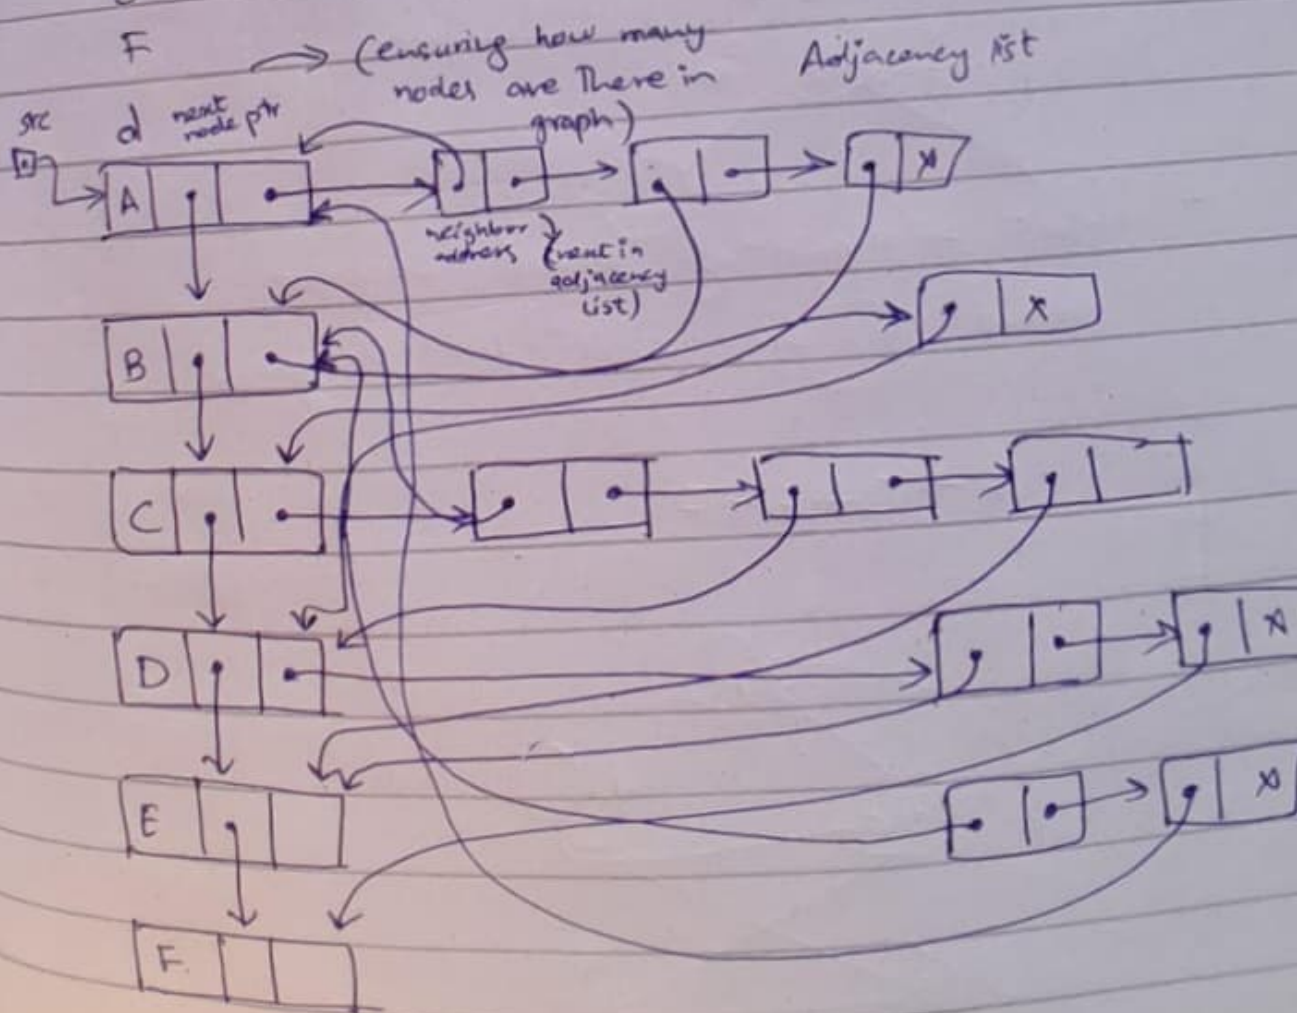 F
(ensuring how many
nodes are There in
graph)
Adjacency list
src
d
next
node ptr
A
X
neighbor
address
(next in
adjacency
list)
B
X
C
D
X
E
X
F